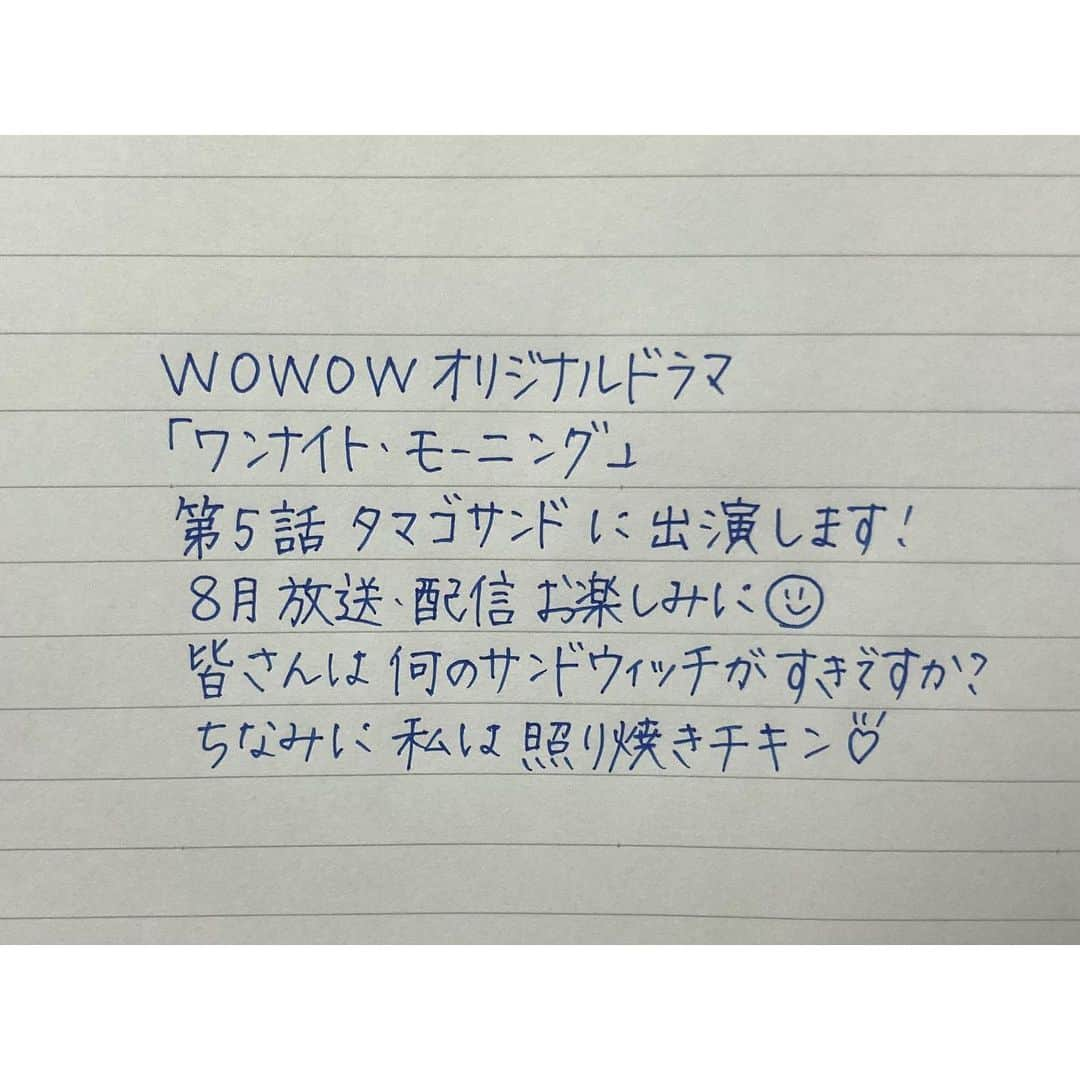 WOWOWオリジナルドラマ
「ワンナイト・モーニング」
第5話 タマゴサンドに出演します!
8月放送・配信お楽しみに☺
皆さんは何のサンドウィッチがすきですか?
ちなみに私は照り焼きチキン♡